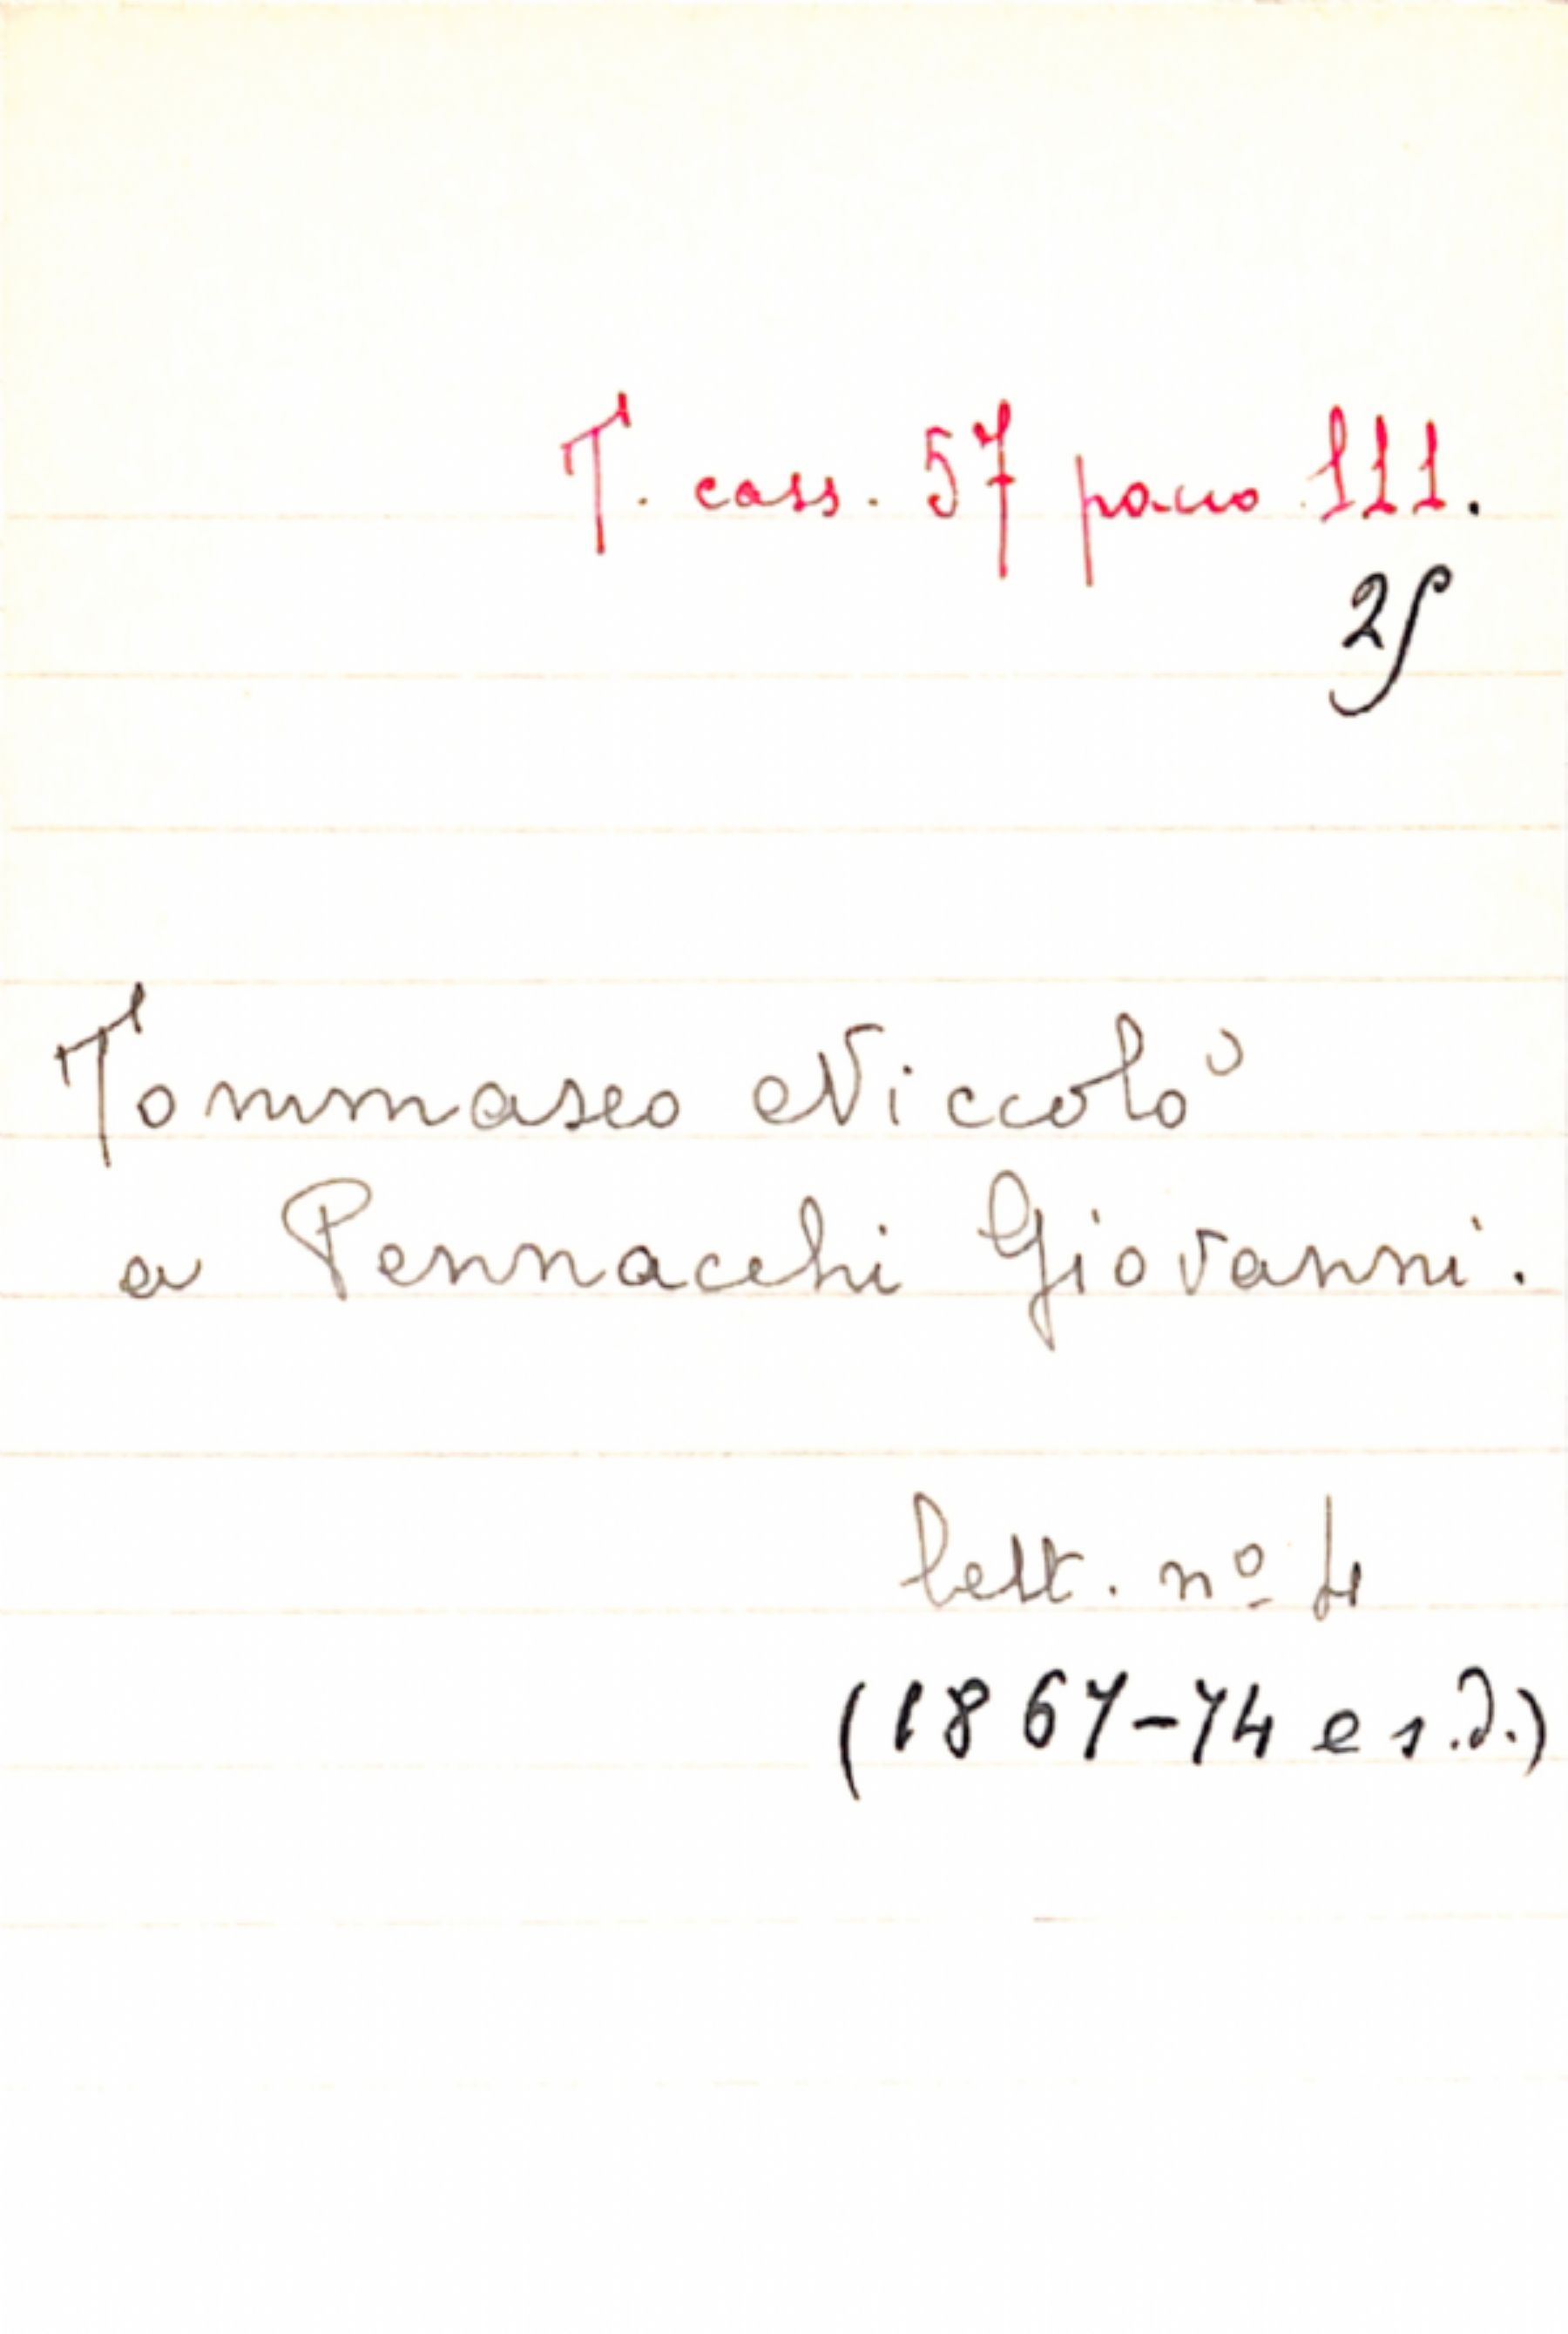 T. cass. 57 pacco 111.
25
Tommaseo Niccolò
a Pennacchi Giovanni.
lett. nº 4
(1867-74 e s.d.)